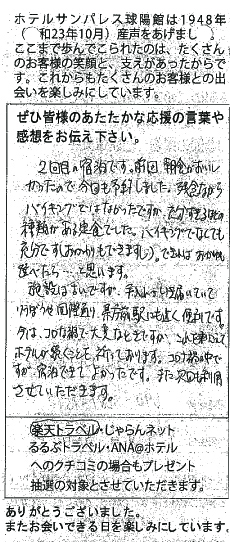 ホテルサンパレス球陽館は1948年
(　和23年10月）産声をあげまし　。
ここまで歩んでこられたのは、たくさん
のお客様の笑顔と、支えがあったからで
す。これからもたくさんのお客様との出
会いを楽しみにしています。
ぜひ皆様のあたたかな応援の言葉や
感想をお伝え下さい。
2回目の宿泊です。前回 朝食がおいし
かったので今回も予約しました。残念ながら
バイキングではなかったですが、
種類がある定食でした。バイキングでなくても
充分です(おかわりもできますし)。できれば
食べたら…と思います。
施設は古いですが、手入れが行き届いていて
県庁前駅にも近く便利です。
今は、コロナ禍で大変なときですが、
ホテルが続くことを祈っております。コロナ禍の中で
すが、宿泊できてよかったです。また次回も利用
させていただきます。
楽天トラベル・じゃらんネット
るるぶトラベル・ANA@ホテル
へのクチコミの場合もプレゼント
抽選の対象とさせていただきます。
ありがとうございました。
またお会いできる日を楽しみにしています。